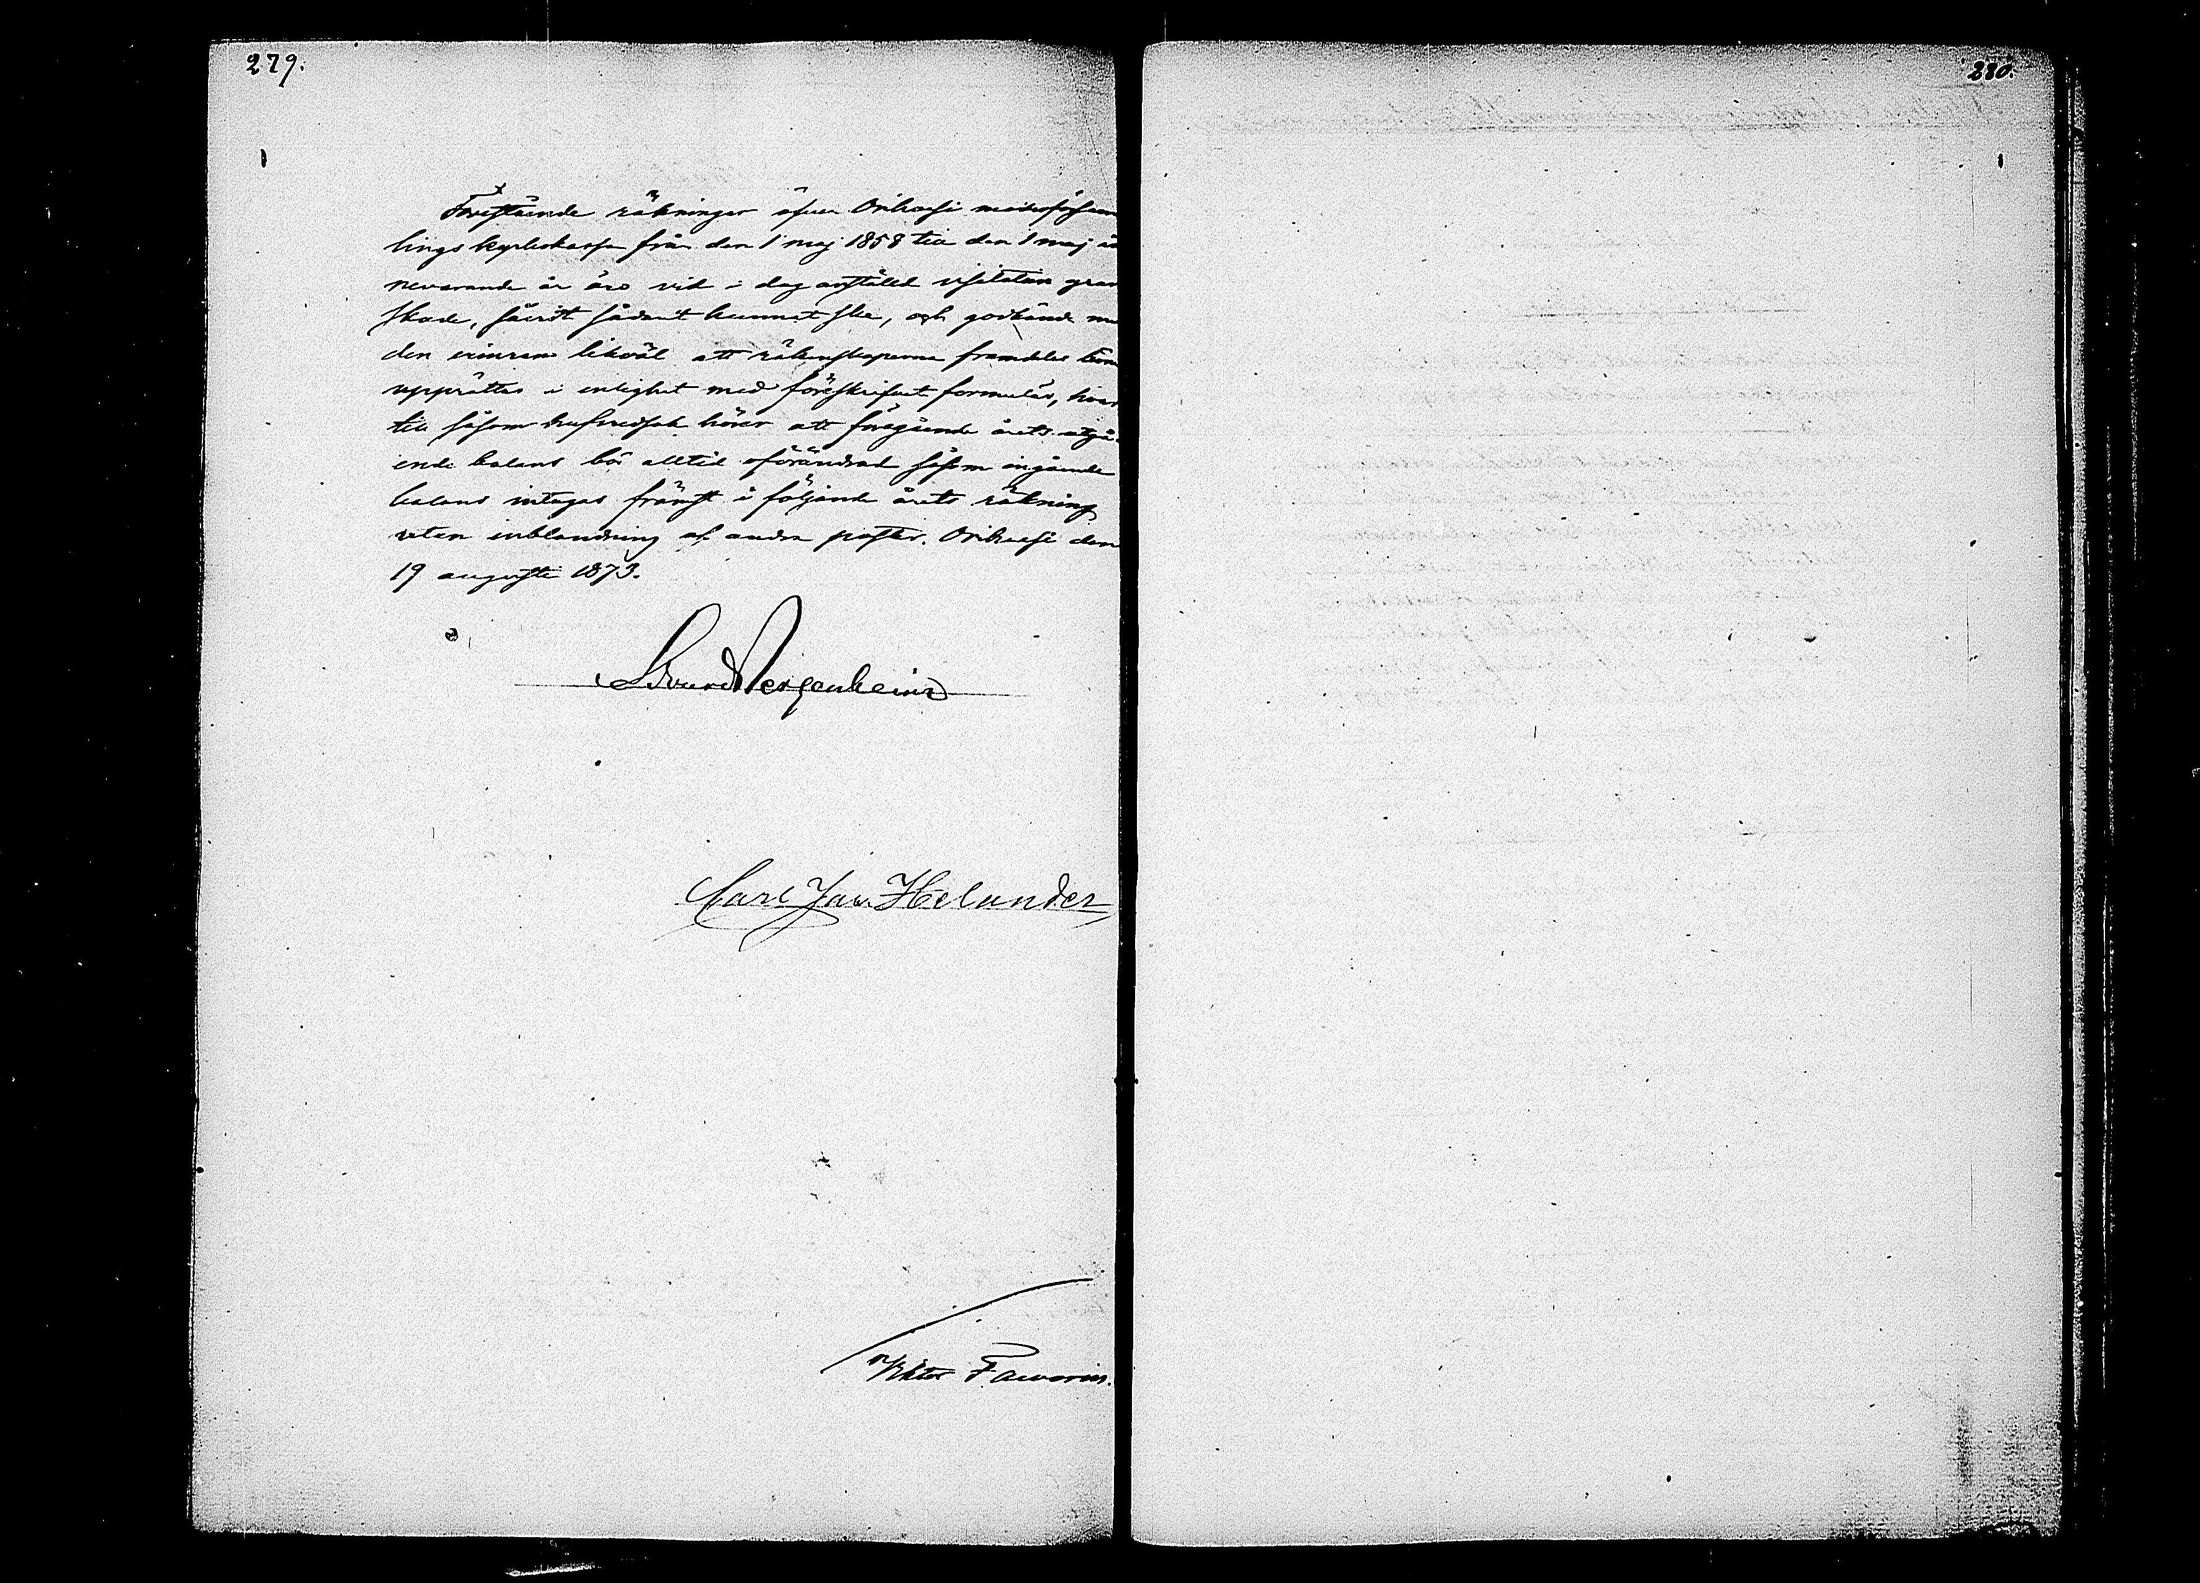 279.
Förestående räkningar öfver Orihvesi moderförsam
lings kyrkokassa från den 1 maj 1858 till den 1 maj in
nevarande år äro vid i dag anställd visitation gran
skade, såvidt sådant kunnat ske, och godkände med
den erinran likväl att räkenskaperna framdeles böra
upprättas i enlighet med föreskrifvet formulär, hvar
till såsom hufvudsak hörer att föregående årets utgå-
ende balans bör alltid oförändrad såsom ingående
balans intagas främst i följande årets räkning
utan inblandning af andra poster. Orihvesi den
19 augusti 1873.
Edvard Bergenheim
Carl Jan Helander
Viktor Faworin.
280.